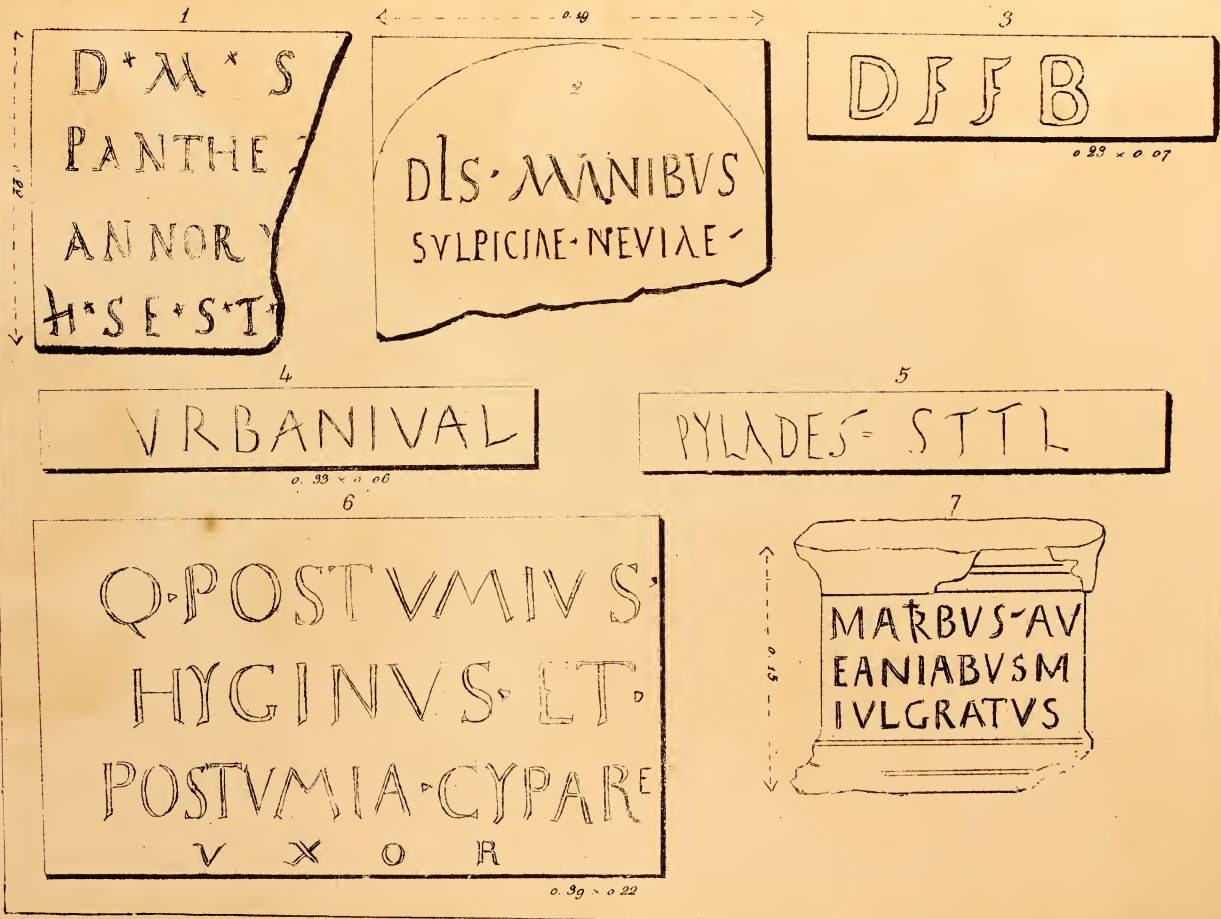 1
D * M * S
PANTHE
ANNOR
H * S E * S * T *
0.19
2
DIS · MANIBVS
SVLPICIAE · NEVIAE
3
D F F B
0 23 × 0.07
4
VRBANIVAL
0. 33 × 0 06
5
PYLADES = STTL
6
Q · POSTVMIVS
HYGINVS · ET ·
POSTVMIA · CYPARE
VXOR
0. 39 × 0 22
7
0.15
MATRBVS AV
EANIABVSM
IVLGRATVS